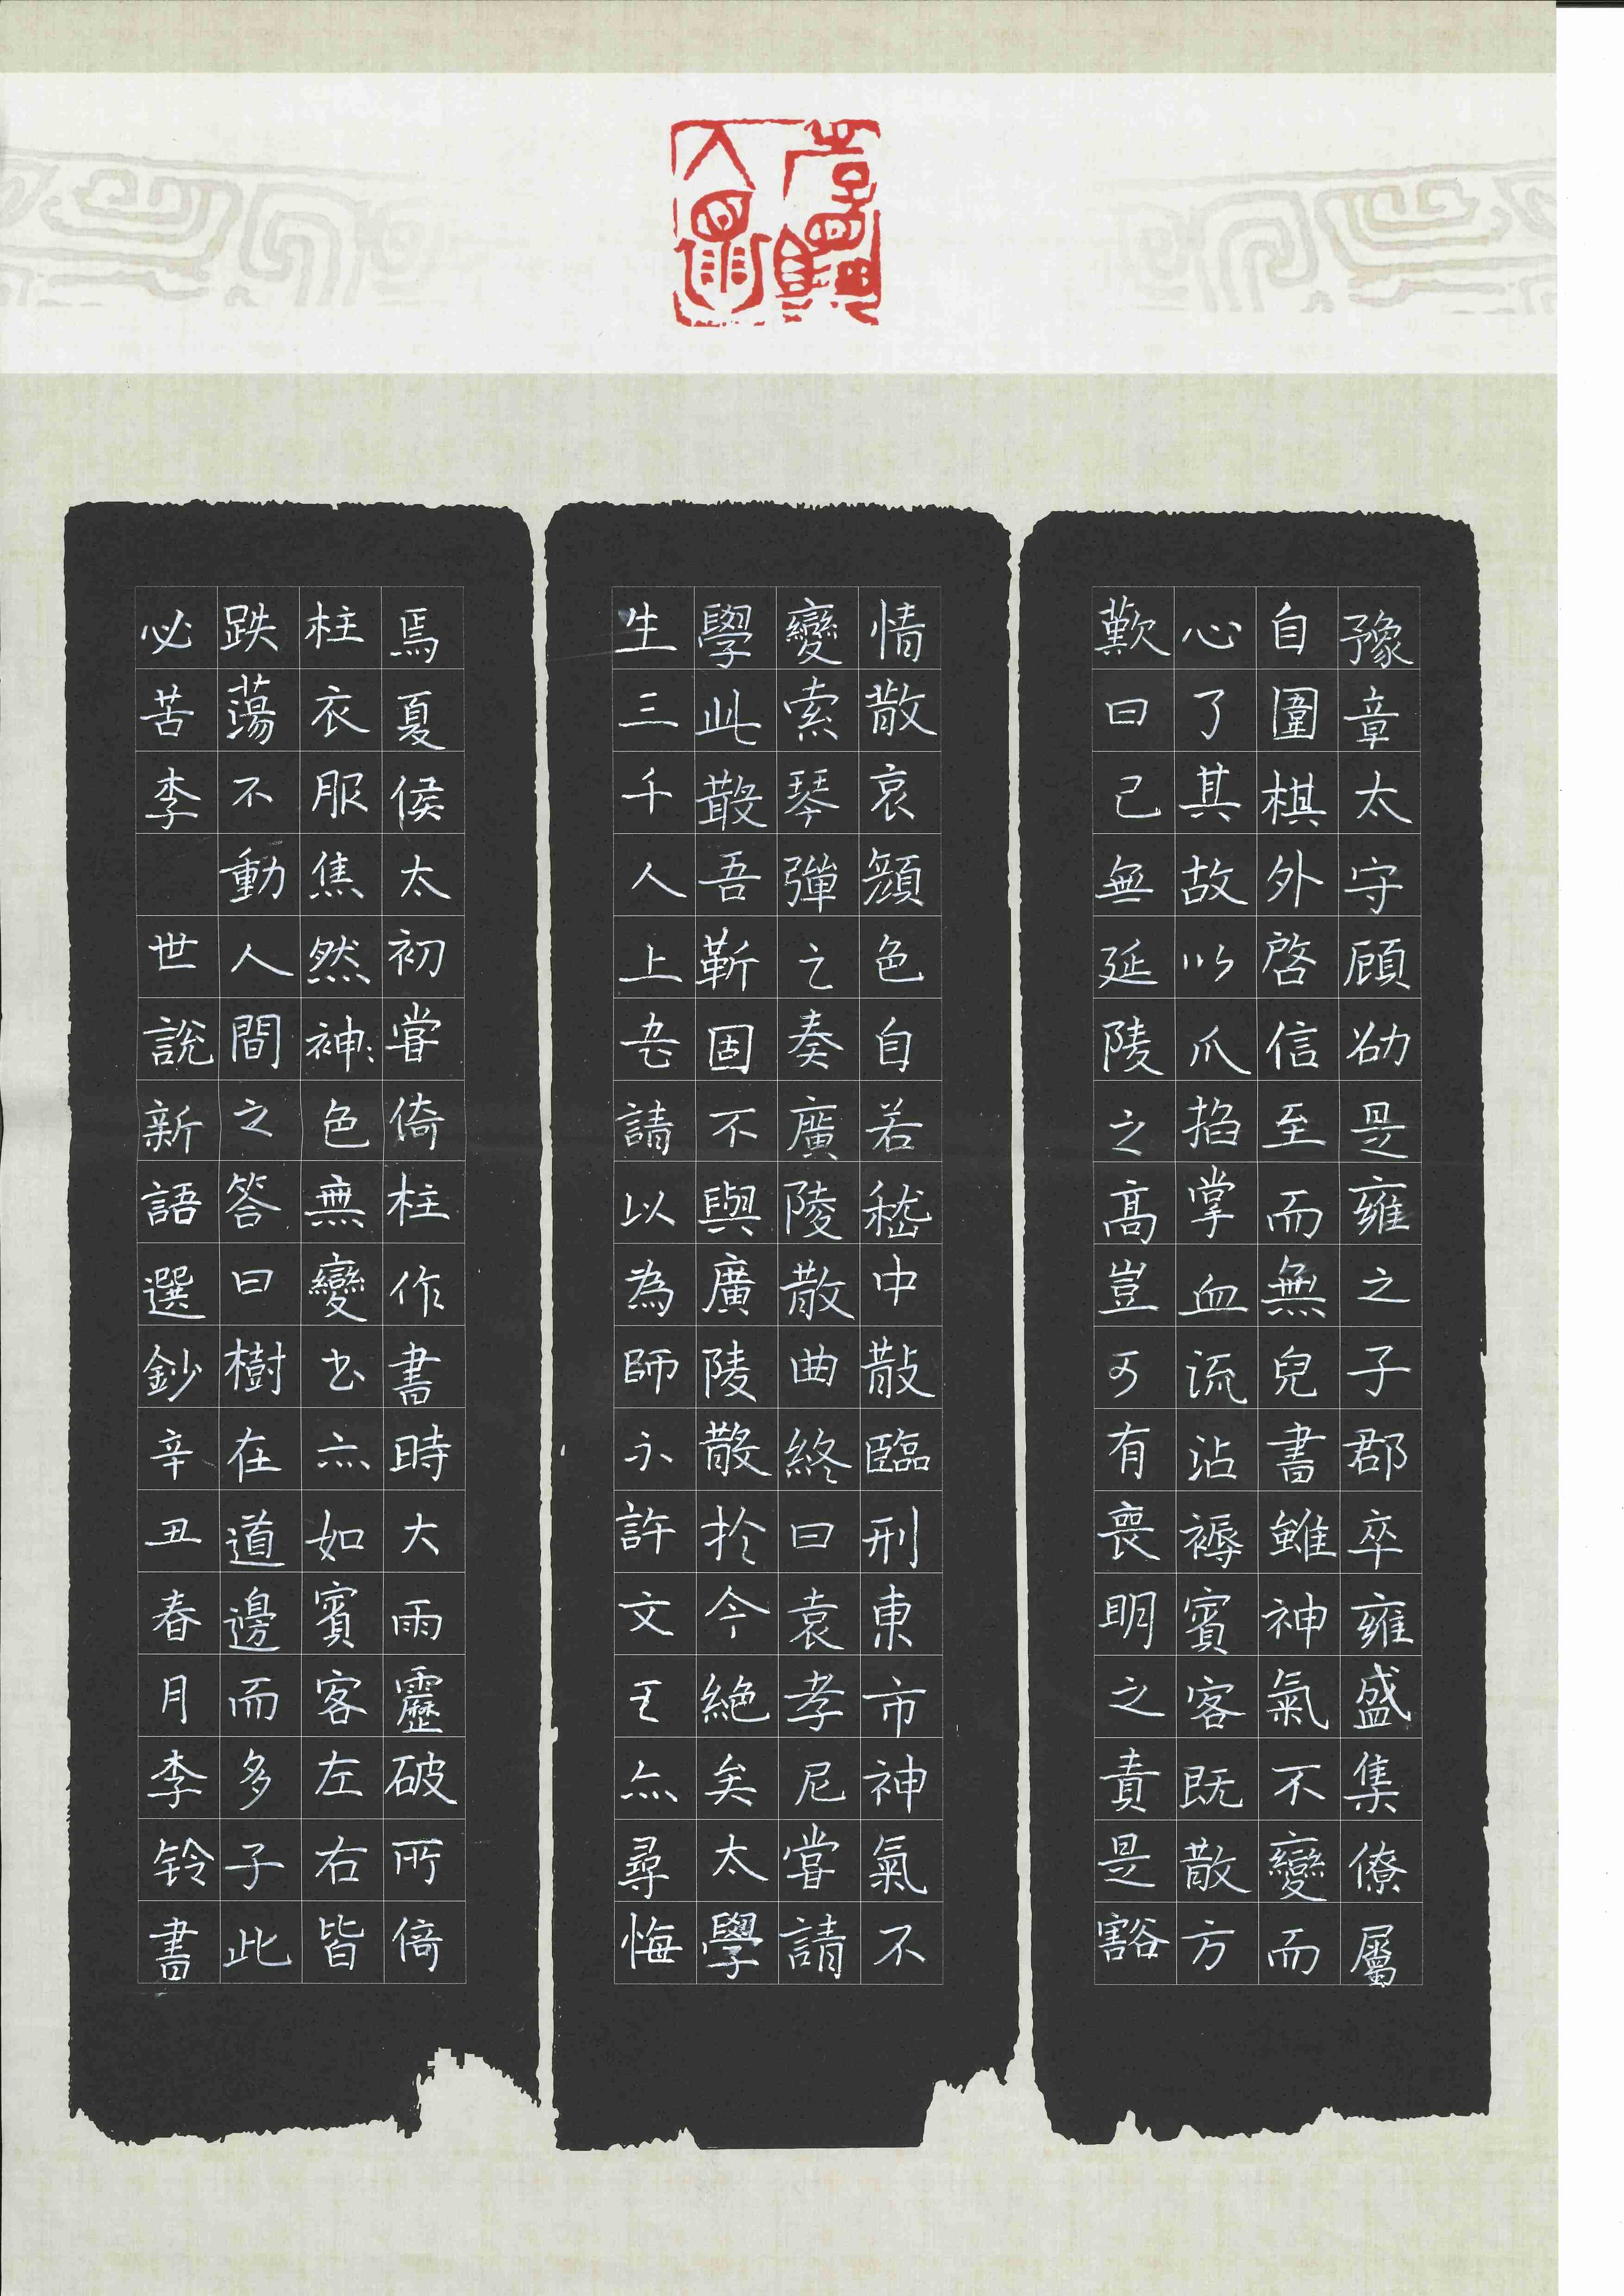 豫章太守顧劭是雍之子郡卒雍盛集僚屬
自圍棋外啓信至而無兒書雖神氣不變而
心了其故以爪掐掌血流沾褥賓客既散方
歎曰已無延陵之高豈可有喪明之責是豁
情散哀顏色自若嵇中散臨刑東市神氣不
變索琴彈之奏廣陵散曲終曰袁孝尼嘗請
學此散吾靳固不與廣陵散於今絕矣太學
生三千人上書請以為師不許文王亦尋悔
焉夏侯太初嘗倚柱作書時大雨靂破所倚
柱衣服焦然神色無變書亦如賓客左右皆
跌蕩不動人間之答曰樹在道邊而多子此
必苦李 世說新語選鈔辛丑春月李铃書